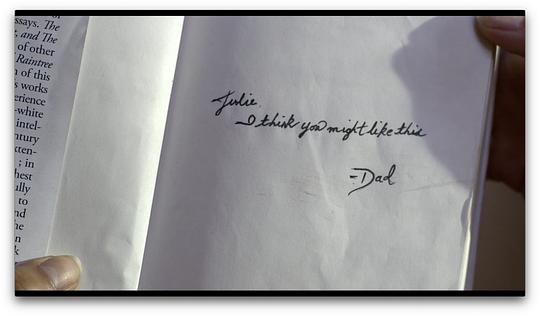 ssays. The
, and The
of other
Raintree
n of this
s works
erience
-white
intel-
ntury
tten-
; in
hest
ully
to
nd
he
n
k
Julie,
I think you might like this
-Dad